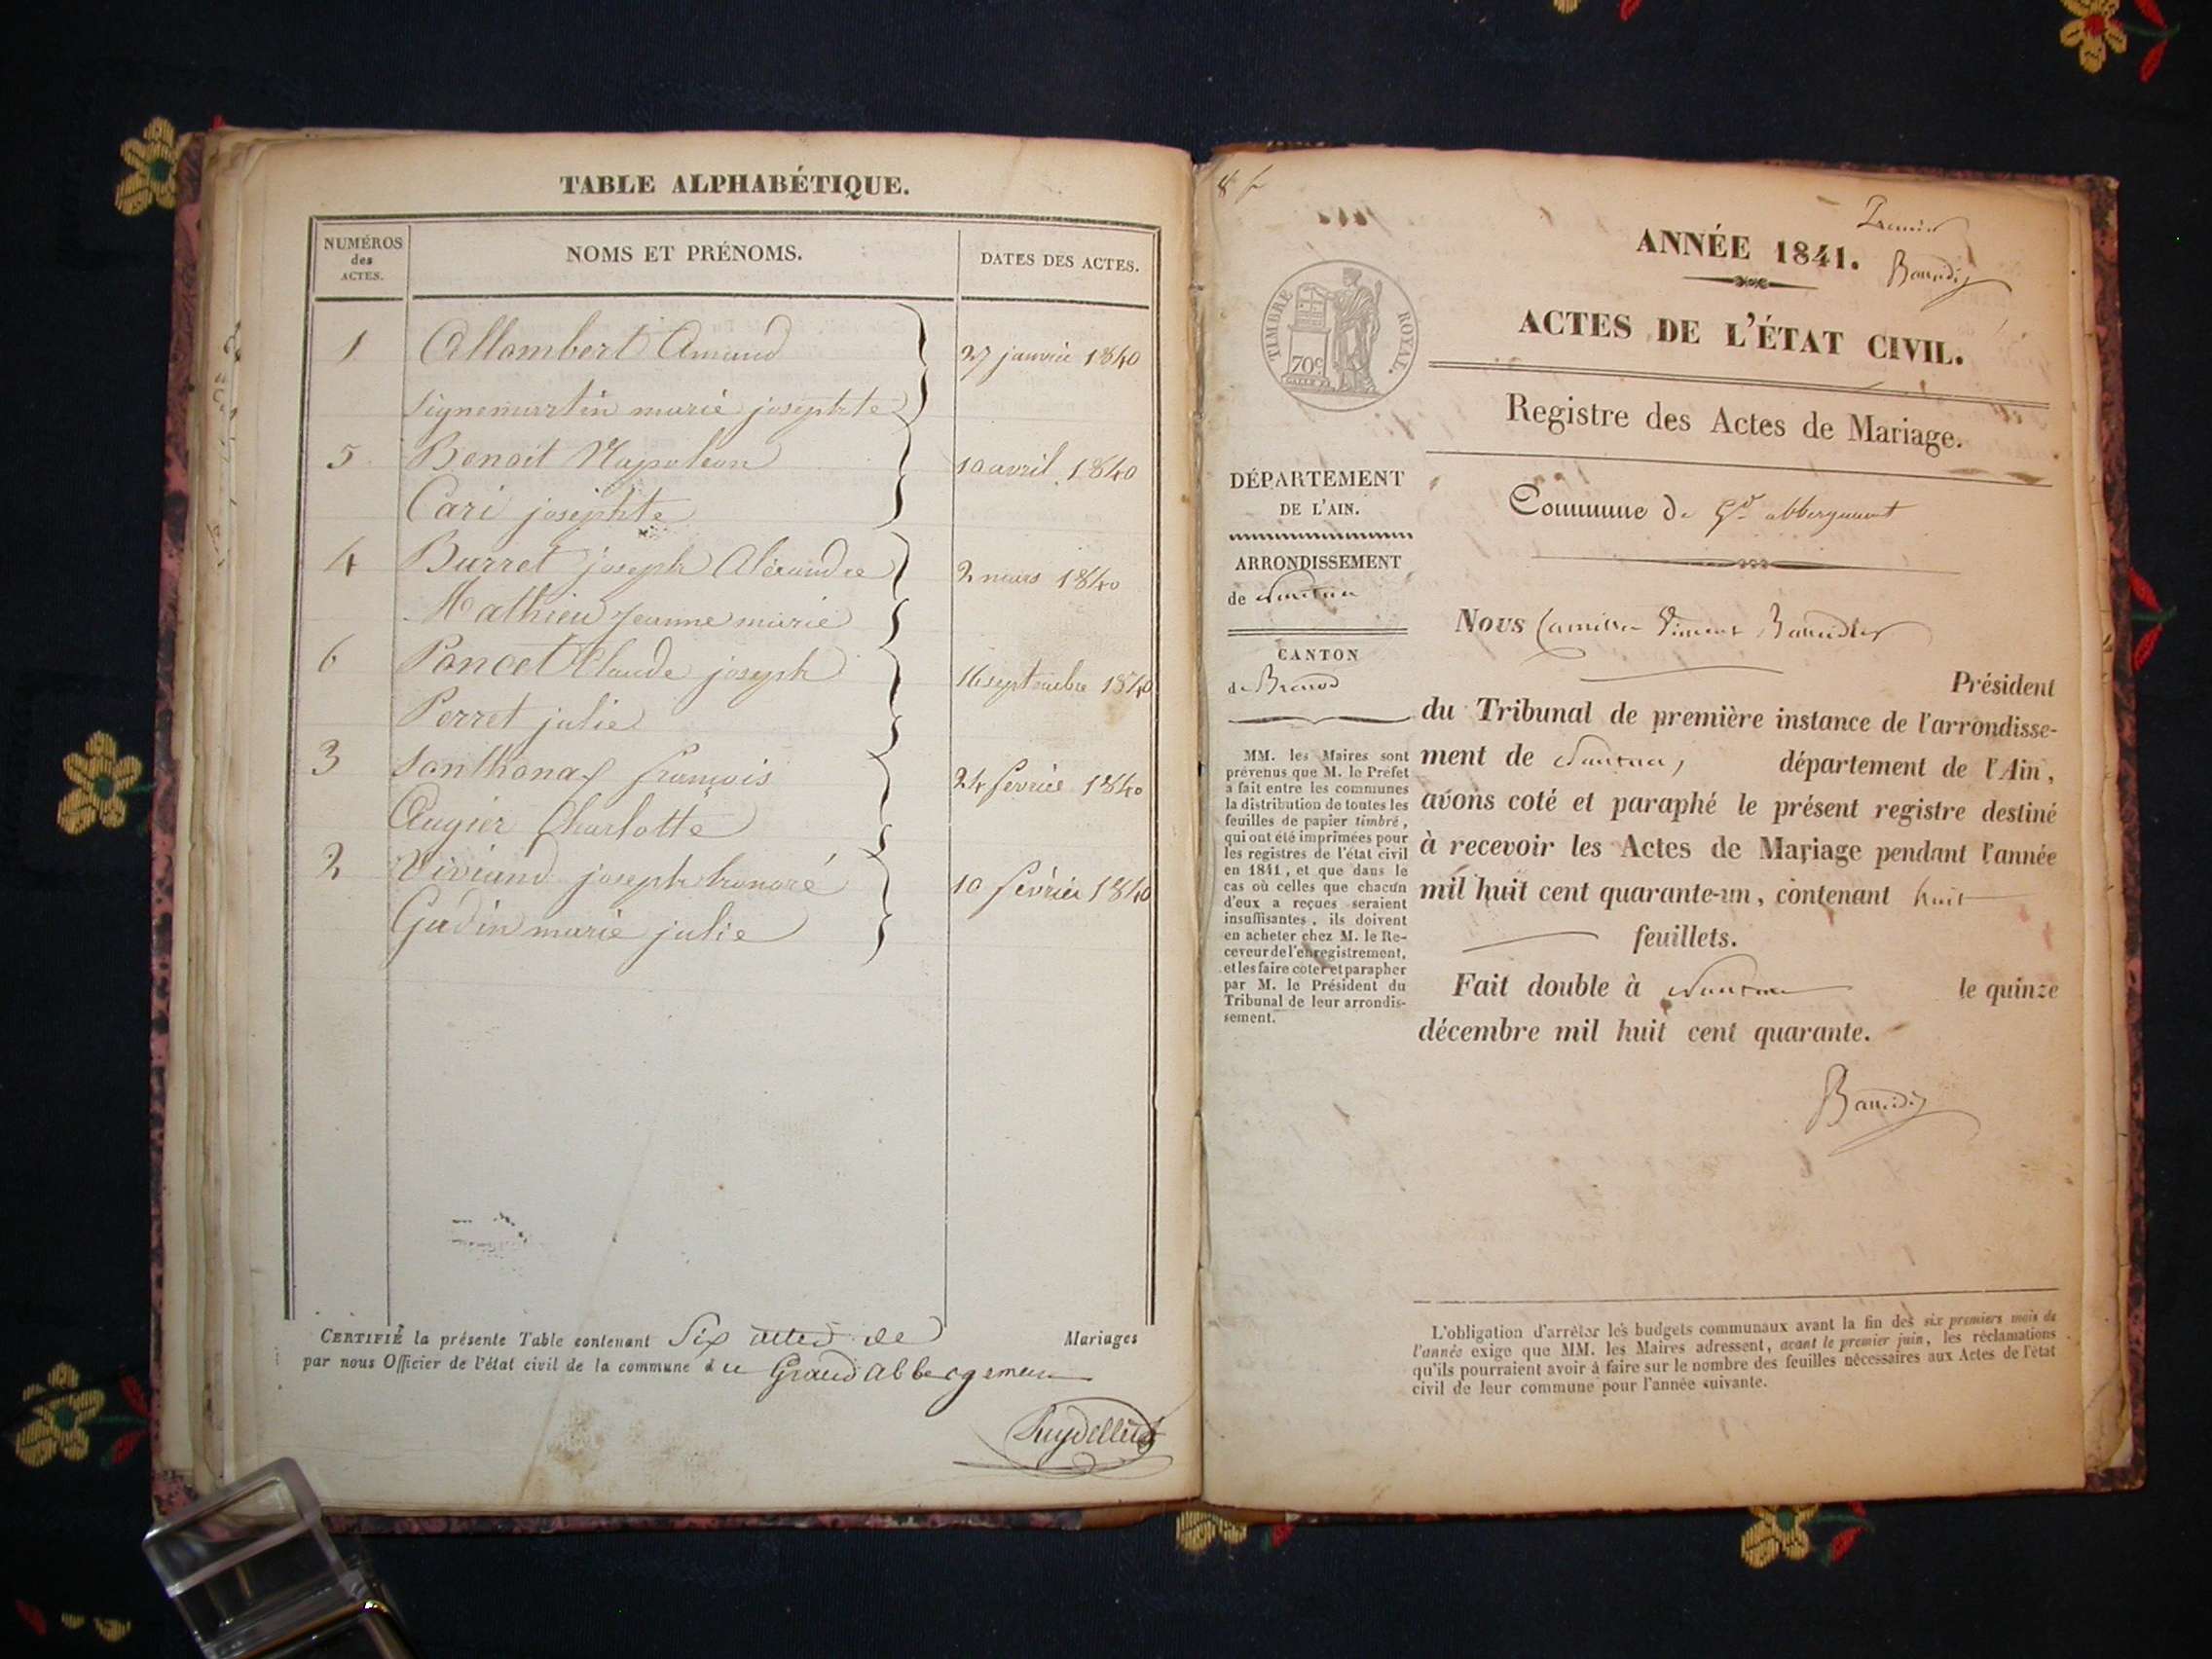 TABLE ALPHABÉTIQUE.
NUMÉROS
des
ACTES.
NOMS ET PRÉNOMS.
DATES DES ACTES.
1 Allombert Amand 27 janvier 1840
Signemartin marie josephte
5 Benoit Napoleon 10 avril 1840
Cari josephte
4 Burret joseph Alexandre 2 mars 1840
Mathieu Jeanne marie
6 Poncet Claude joseph 16 septembre 1840
Perret julie
3 Sonthonax françois 24 fevrier 1840
Augier Charlotte
2 Viviand joseph honoré 10 février 1840
Gudin marie julie
CERTIFIÉ la présente Table contenant Six actes de Mariages
par nous Officier de l'état civil de la commune du Grand abbergement
8 f
Premier
ANNÉE 1841.
ACTES DE L'ÉTAT CIVIL.
TIMBRE ROYAL.
70c
Registre des Actes de Mariage.
DÉPARTEMENT
DE L'AIN.
ARRONDISSEMENT
de Nantua
CANTON
de Brenod
MM. les Maires sont
prévenus que M. le Préfet
a fait entre les communes
la distribution de toutes les
feuilles de papier timbré,
qui ont été imprimées pour
les registres de l'état civil
en 1841, et que dans le
cas où celles que chacun
d'eux a reçues seraient
insuffisantes, ils doivent
en acheter chez M. le Re-
ceveur de l'enregistrement,
et les faire coter et parapher
par M. le Président du
Tribunal de leur arrondis-
sement.
Commune de Gd abbergement
Nous Camille Vincent
Président
du Tribunal de première instance de l'arrondisse-
ment de Nantua, département de l'Ain,
avons coté et paraphé le présent registre destiné
à recevoir les Actes de Mariage pendant l'année
mil huit cent quarante-un, contenant huit
feuillets.
Fait double à Nantua le quinze
décembre mil huit cent quarante.
L'obligation d'arrêter les budgets communaux avant la fin des six premiers mois de
l'année exige que MM. les Maires adressent, avant le premier juin, les réclamations
qu'ils pourraient avoir à faire sur le nombre des feuilles nécessaires aux Actes de l'état
civil de leur commune pour l'année suivante.